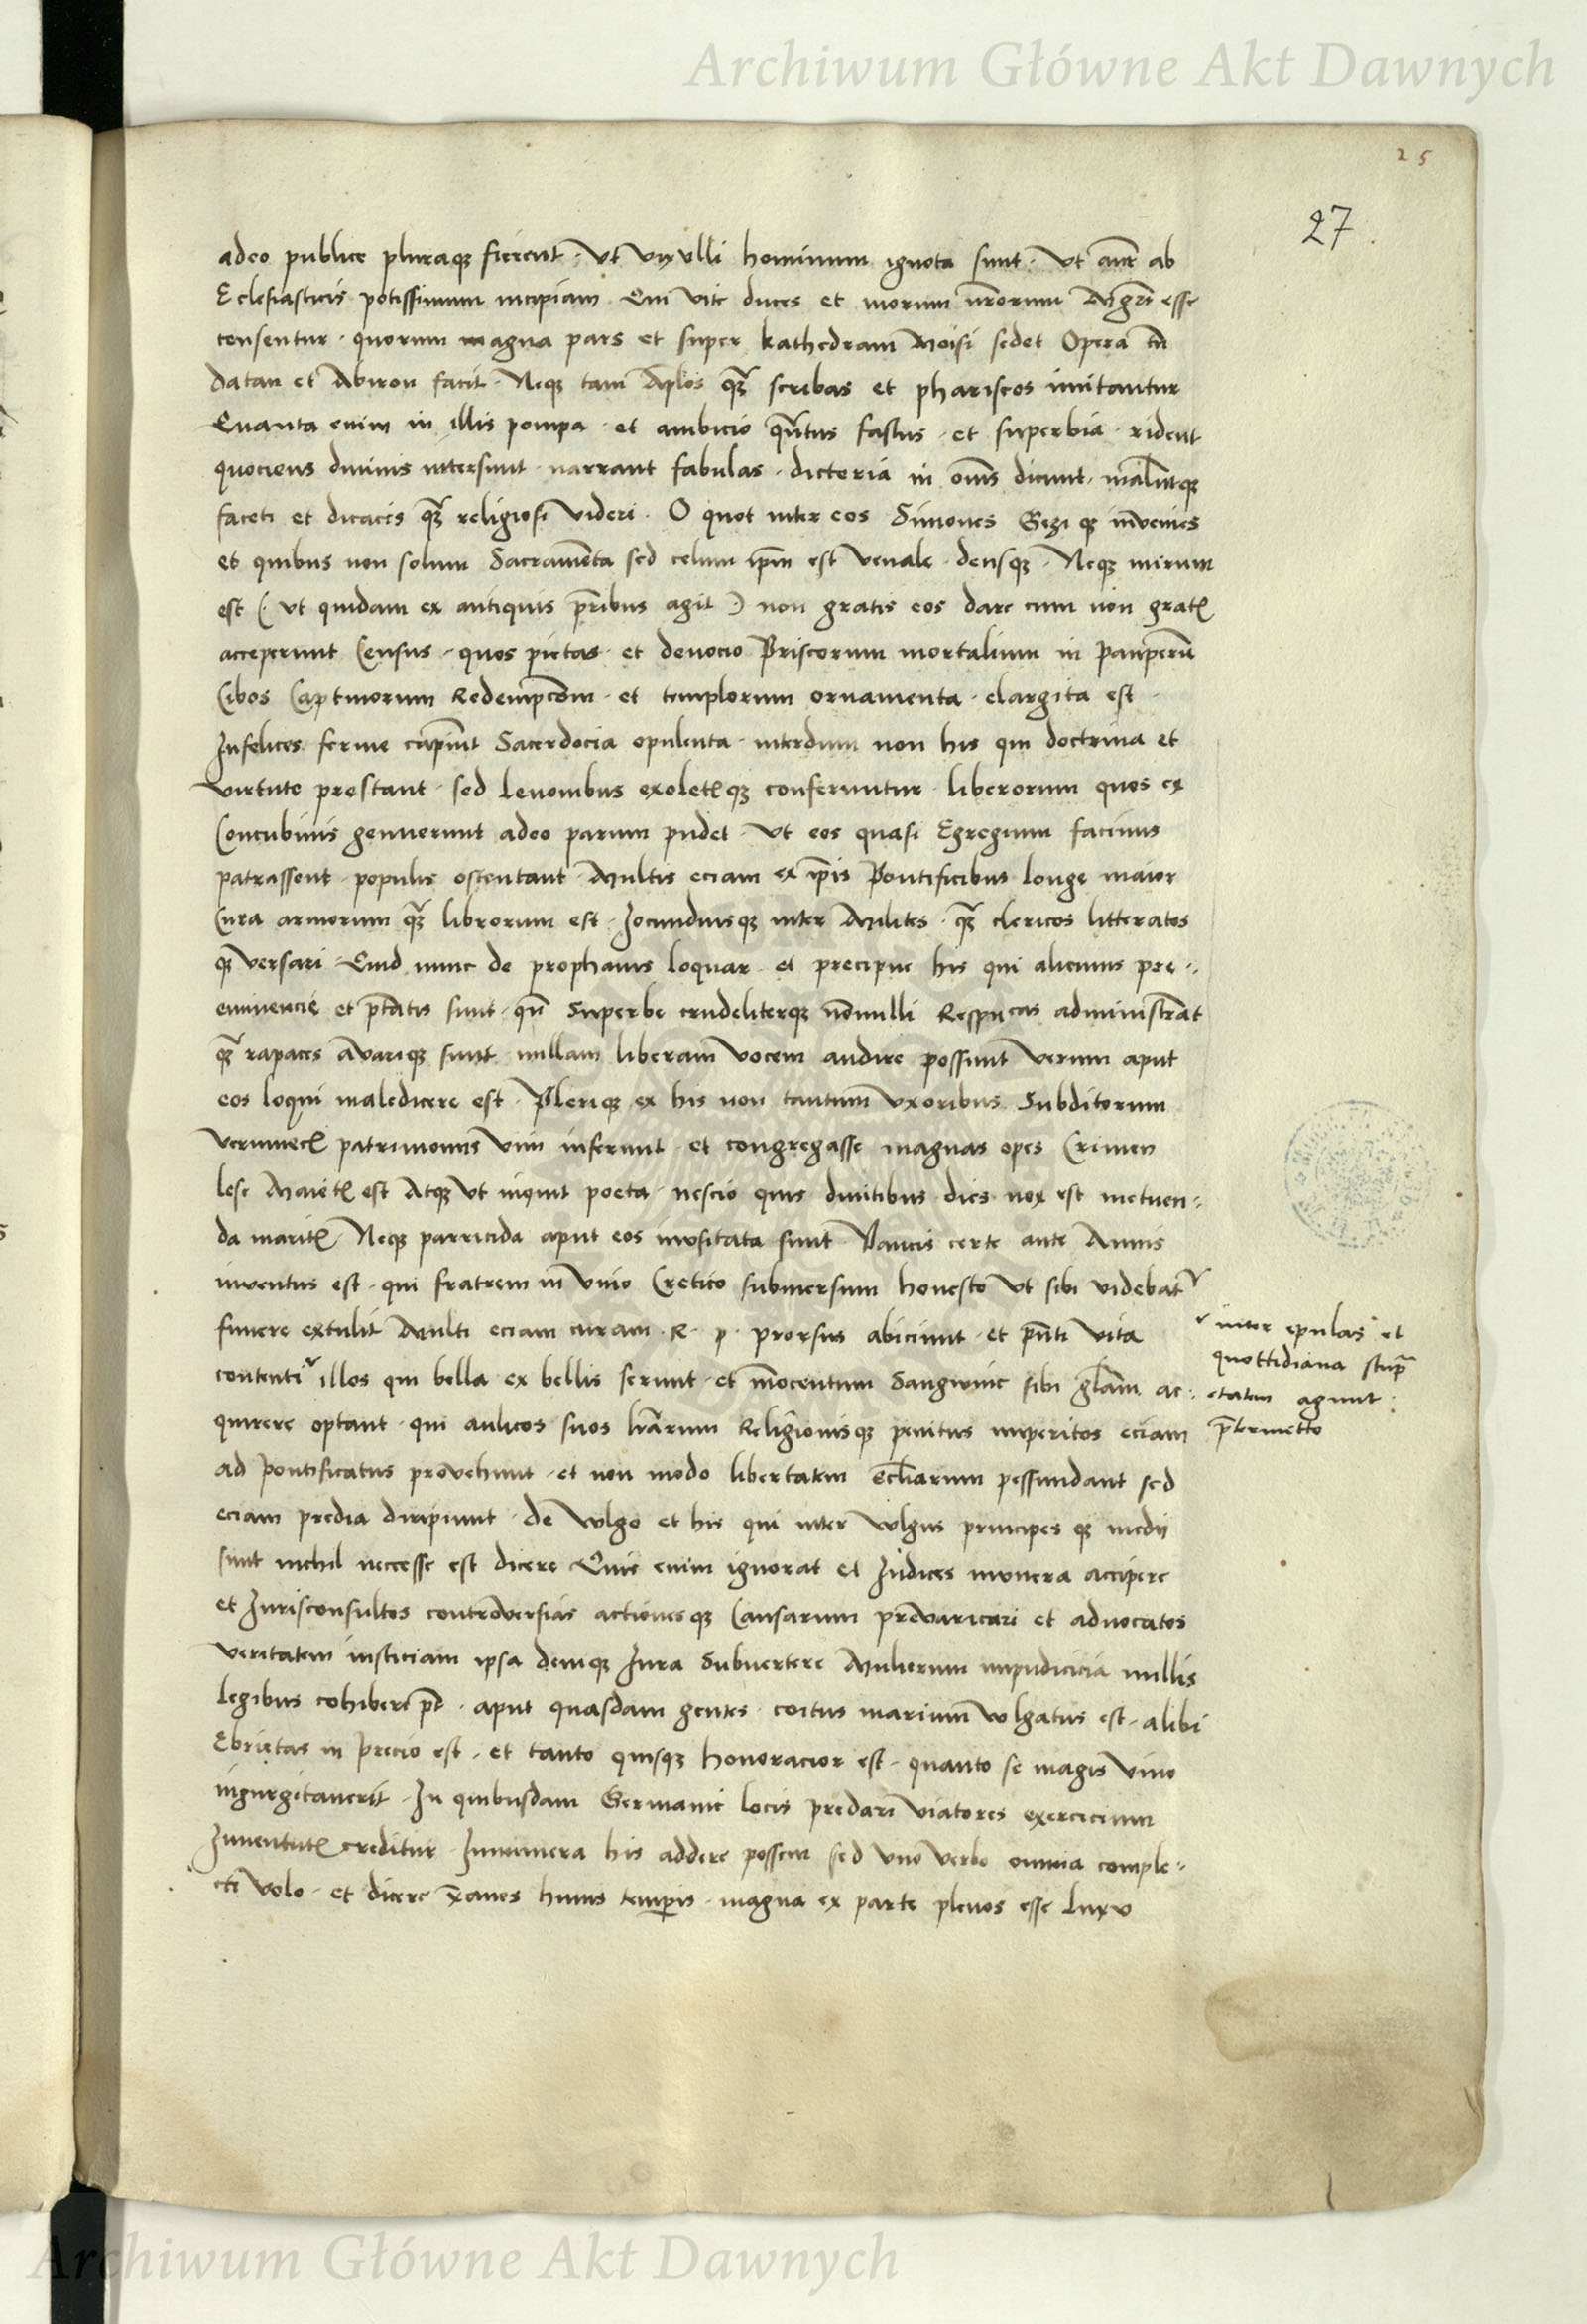 Archiwum Główne Akt Dawnych
25
27.
adeo publice pluraq₃ fierent · vt vix vlli hominum ignota sunt · vt aūt ab
Eclesiasticis potissimum incipiam Qui vite duces et morum nr̄orum Mgr̄i esse
censentur · quorum magna pars et super kathedram Moisi sedet Opera tn̄
datan et Abiron facit · Neq₃ tam Ap̄los q̄₃ scribas et phariseos imitantur
Quanta enim in illis pompa · et ambicio qn̄tus fastus · et superbia · rident
quociens diuinis intersunt · narrant fabulas · dicteria in om̄s dicunt · mal̄intq₃
faceti et dicaces q̄₃ religiosi videri · O quot inter eos Simones Gezi q₃ inuenies
et quibus non solum Sacramenta sed celum ip̄m est venale · densq₃ · Neq₃ mirum
est (· vt quidam ex antiquis pr̄ibus agit ·) non gratis eos dare cum non grat̄
acceperunt Census · quos pietas · et deuocio Priscorum mortalium in pauperū
Cibos Captiuorum Redempcōm · et templorum ornamenta · elargita est ·
Infelices ferme capiūt Sacerdocia opulenta · interdum non his qui doctrina et
virtute prestant · sed Lenonibus exolet̄q₃ conferuntur · liberorum quos ex
Concubinis genuerunt adeo parum pudet · vt eos quasi Egregium facinus
patrassent · populis ostentant · Multis eciam ex ip̄is Pontificibus longe maior
Cura armorum q̄₃ librorum est · Iocundiusq₃ inter Milites · q̄₃ clericos litteratos
q₃ versari · Quid nunc de prophanis loquar et precipue his qui alicuius pre-
eminencie et ptātis sunt · qn̄ Superbe crudeliterq₃ nōnulli Respucas administrāt
q̄₃ rapaces auariq₃ sunt nullam liberam vocem audire possunt verum aput
eos loqui maledicere est · Pleriq₃ ex his non tantum vxoribus Subditorum
verumec̄ patrimoniis vim inferunt · et congregasse magnas opes Crimen
lese Maiet̄ est Atq₃ vt inquit poeta · nescio quis diuitibus dies nox est metuen-
da marit̄ · Neq₃ parricida aput eos inusitata sunt · Paucis certe ante Annis
inuentus est · qui fratrem in vino Cretico submersum honesto vt sibi videbat̄
funere extulit Multi eciam curam · R · p · prorsus abiciunt · et pn̄ti vita
contenti illos qui bella ex bellis serunt · et Inocentum Sangwine sibi glām ac-
quirere optant · qui aulicos suos lr̄arum Religionisq₃ penitus imperitos eciam
ad pontificatus prouehunt · et non modo libertatem ecl̄iarum pessundant sed
eciam predia diripiunt · de wlgo et his qui inter wlgus principes q₃ medii
sunt nichil necesse est dicere Quis enim ignorat et Iudices munera accipere
et Iurisconsultos controuersias actionesq₃ Causarum preuaricari et aduocatos
veritatem iusticiam ipsa deniq₃ Iura Subuertere Mulierum impudicicia nullis
legibus cohiberi pt̄ · aput quasdam gentes · coitus marium wlgatus est · alibi
Ebrietas in precio est · et tanto quisq₃ honoracior est · quanto se magis vino
ingurgitauerit · In quibusdam Germanie locis predari viatores exercicium
Iuuentut̄ creditur · Innumera his addere possem sed vno verbo omnia comple-
cti volo · et dicere x̄anos huius temp̄is · magna ex parte plenos esse Luxu
inter epulas et
quottidiana stupr̄
etatem agunt ·
pr̄termitto
Archiwum Główne Akt Dawnych